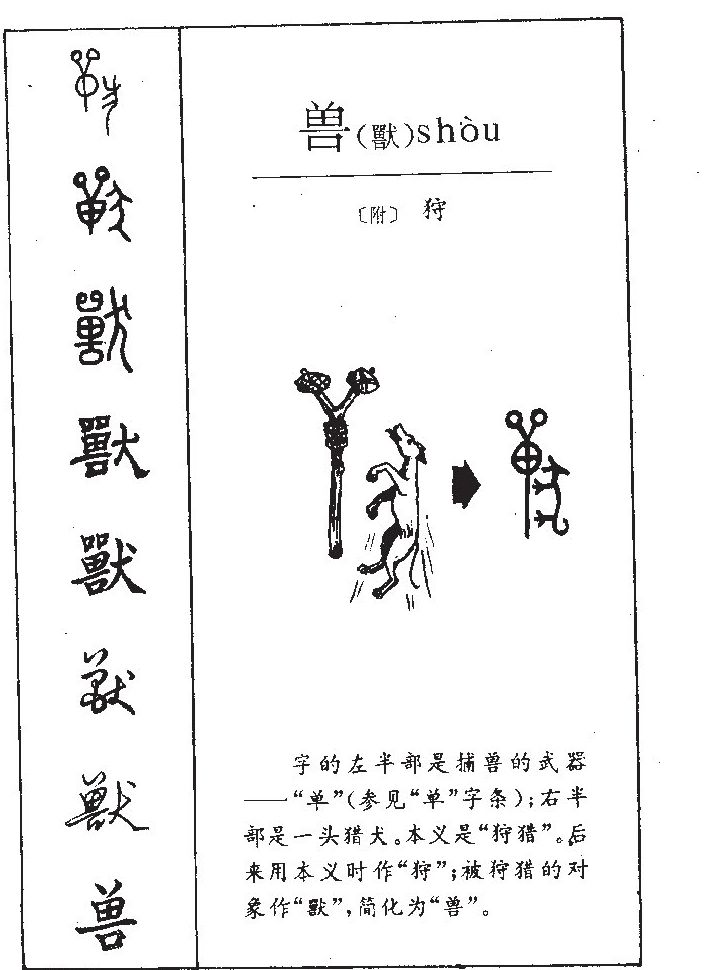 兽(獸)shòu
〔附〕 狩
字的左半部是捕兽的武器
——“单”(参见“单”字条);右半
部是一头猎犬。本义是“狩猎”。后
来用本义时作“狩”;被狩猎的对
象作“獸”,简化为“兽”。
獸
獸
獸
兽